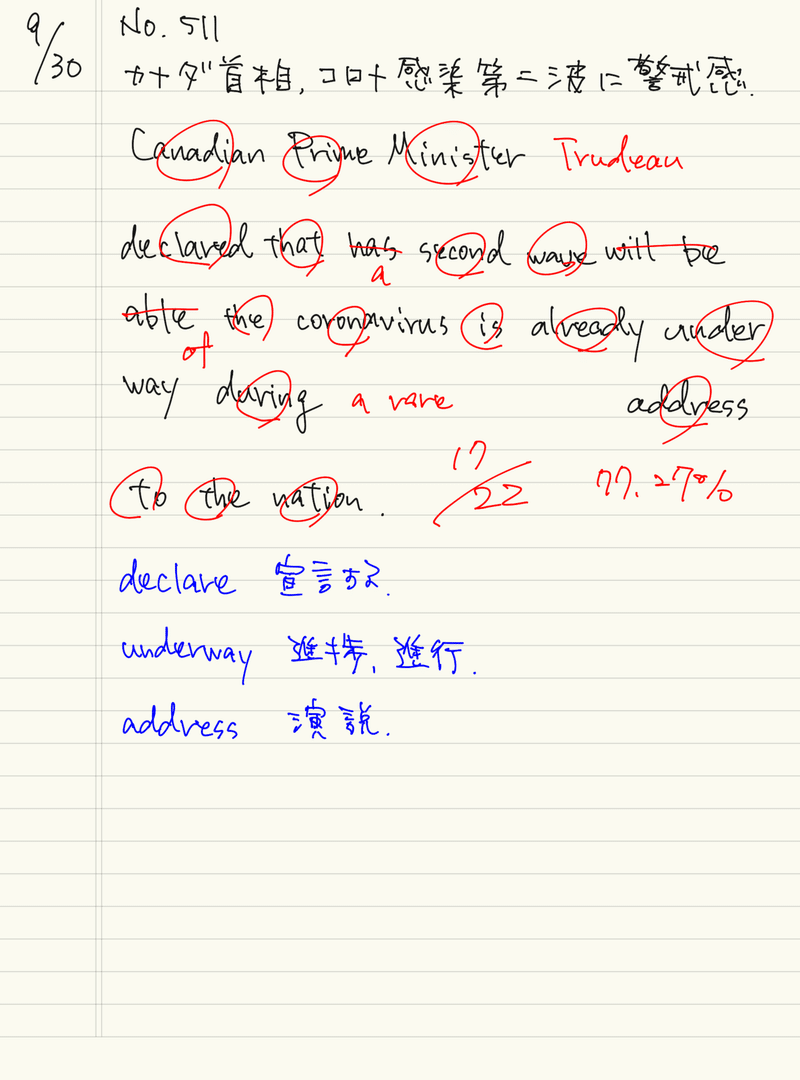 9/30
No. 511
カナダ首相,コロナ感染第二波に警戒感.
Canadian Prime Minister Trudeau
declared that has second wave will be
a
able the coronavirus is already under
of
way during a rare address
to the nation. 17/22 77.27%
declare 宣言する.
underway 進捗,進行.
address 演説.